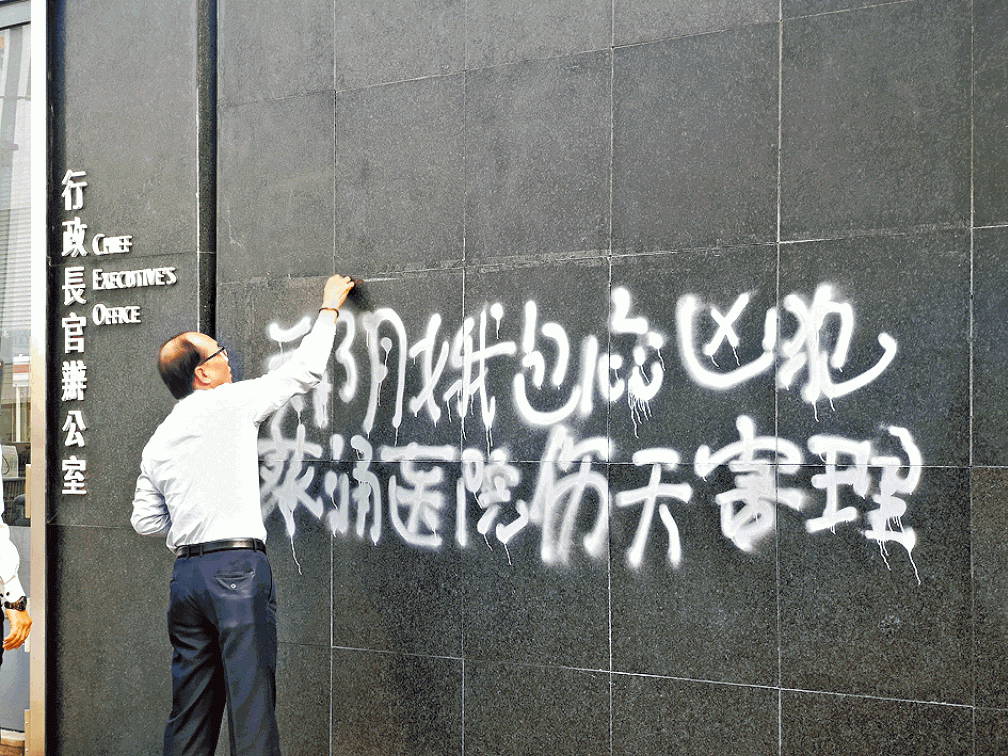 行政長官辦公室
CHIEF
EXECUTIVE'S
OFFICE
月娥包庇凶犯
葵涌医院伤天害理